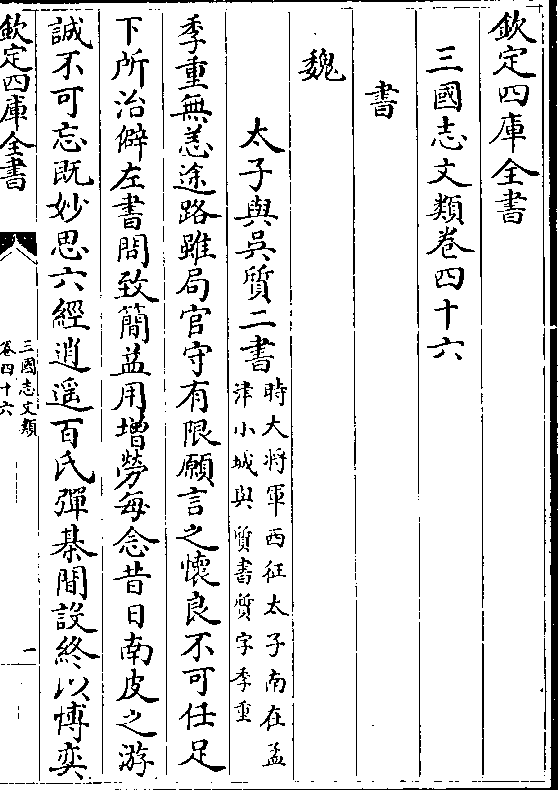 欽定四庫全書
三國志文類卷四十六
書
魏
太子與吳質二書時大将軍西征太子南在孟
津小城與質書質字季重
季重無恙途路雖局官守有限願言之懷良不可任足
下所治僻左書問致簡益用增勞每念昔日南皮之游
誠不可忘既妙思六經逍遥百氏彈棊間設終以博奕
欽定四庫全書
三國志文類
卷四十六
一